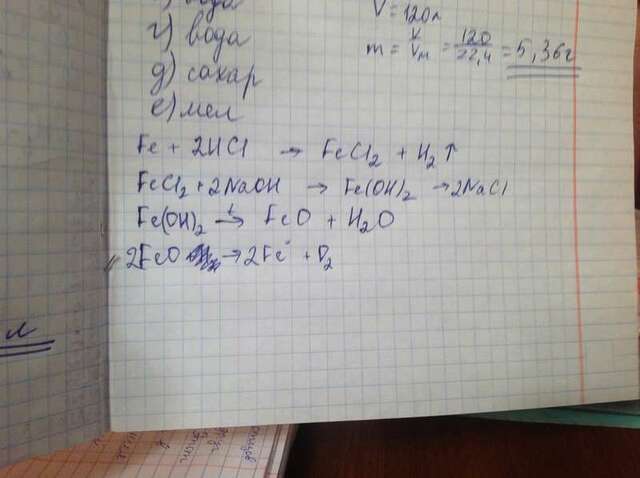 г) вода
д) сахар
е) мел
V = 120л
m = V/Vм = 120/22,4 = 5,36г
Fe + 2HCl → FeCl₂ + H₂↑
FeCl₂ + 2NaOH → Fe(OH)₂ → 2NaCl
Fe(OH)₂ →t FeO + H₂O
2FeO → 2Fe + O₂
л